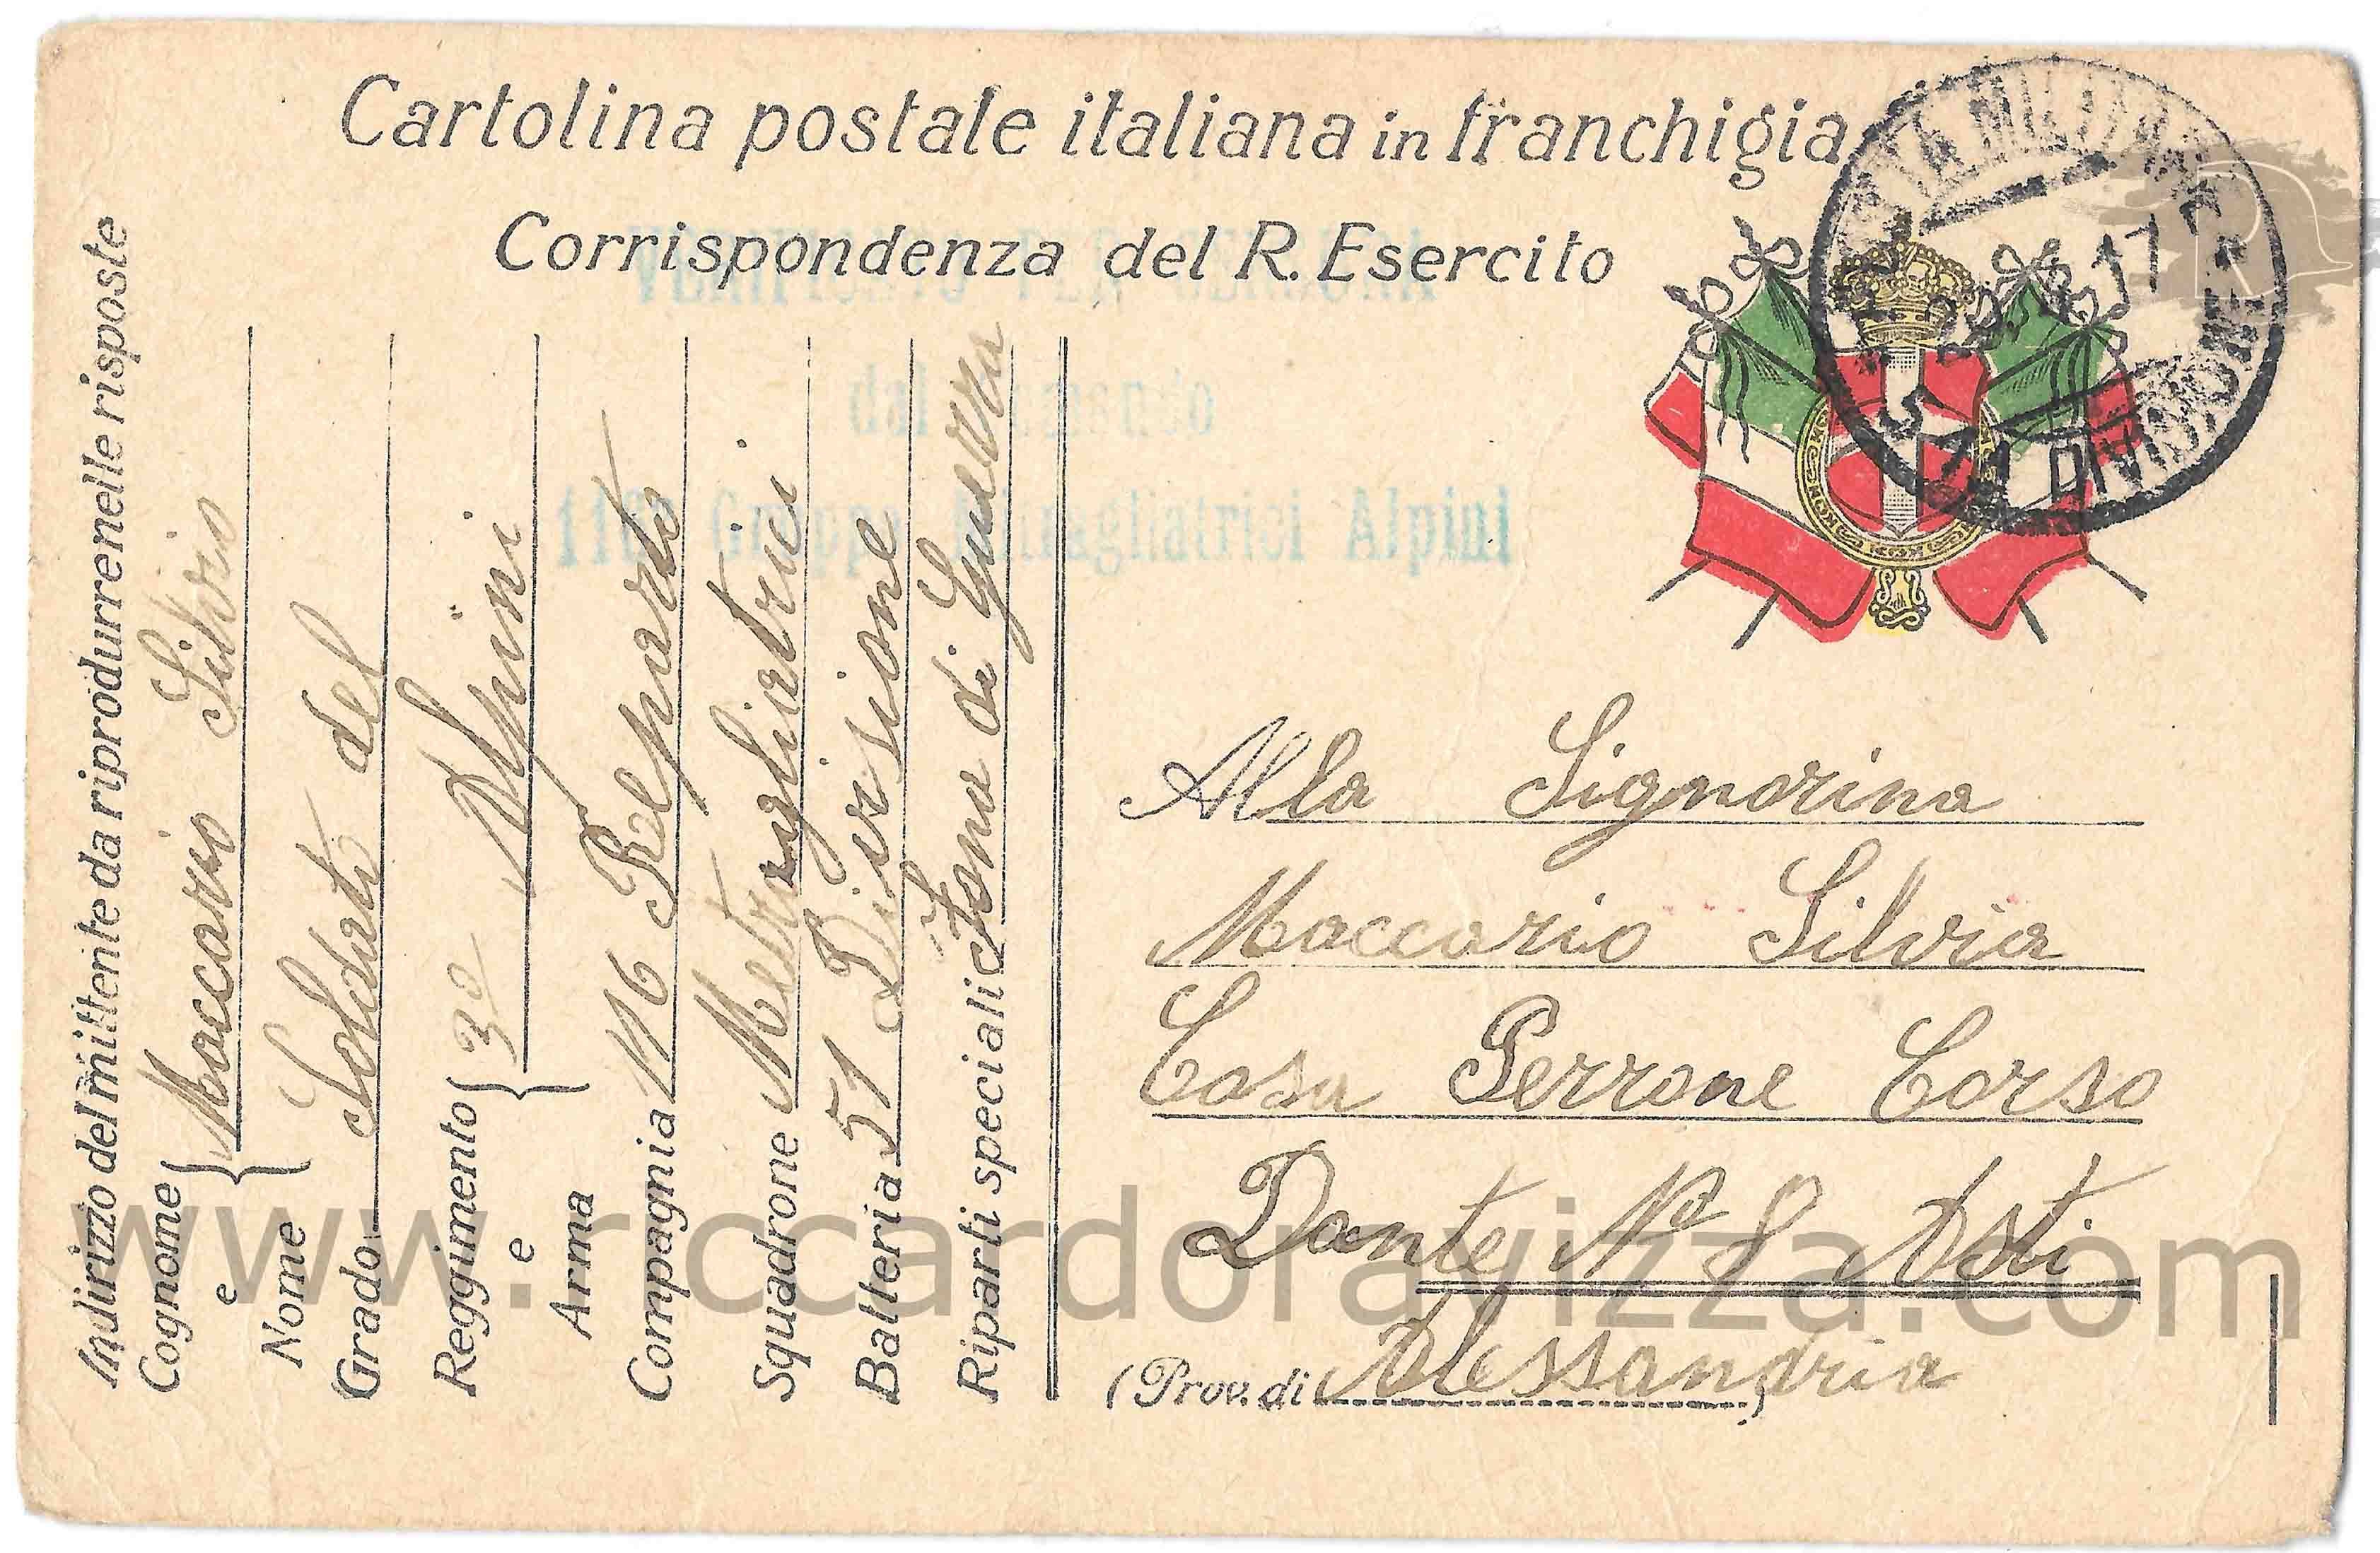 Cartolina postale italiana in franchigia
Corrispondenza del R. Esercito
VERIFICATO PER CENSURA
dal Comando
116° Gruppo Mitragliatrici Alpini
POSTA MILITARE
17
51ª DIVISIONE
Indirizzo del mittente da riprodurre nelle risposte
Cognome e Nome Maccario Silvio
Grado Soldato del
Reggimento e Arma 3º Alpini
Compagnia 116 Reparto
Squadrone Metragliatrici
Batteria 51 Divisione
Riparti speciali Zona di Guerra
Alla Signorina
Maccario Silvia
Casa Perrone Corso
Dante Nº 8 Asti
(Prov. di Alessandria)
www.riccardoravizza.com
R